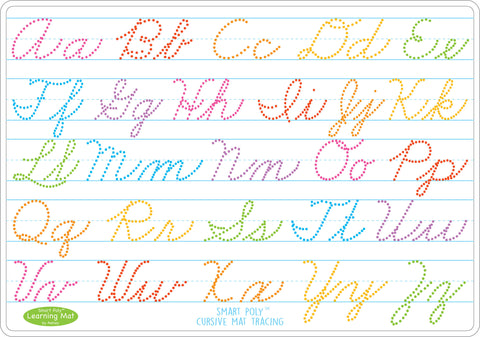 Aa Bb Cc Dd Ee
Ff Gg Hh Ii Jj Kk
Ll Mm Nn Oo Pp
Qq Rr Ss Tt Uu
Vv Ww Xx Yy Zz
Smart Poly™
Learning Mat
SMART POLY™
CURSIVE MAT TRACING